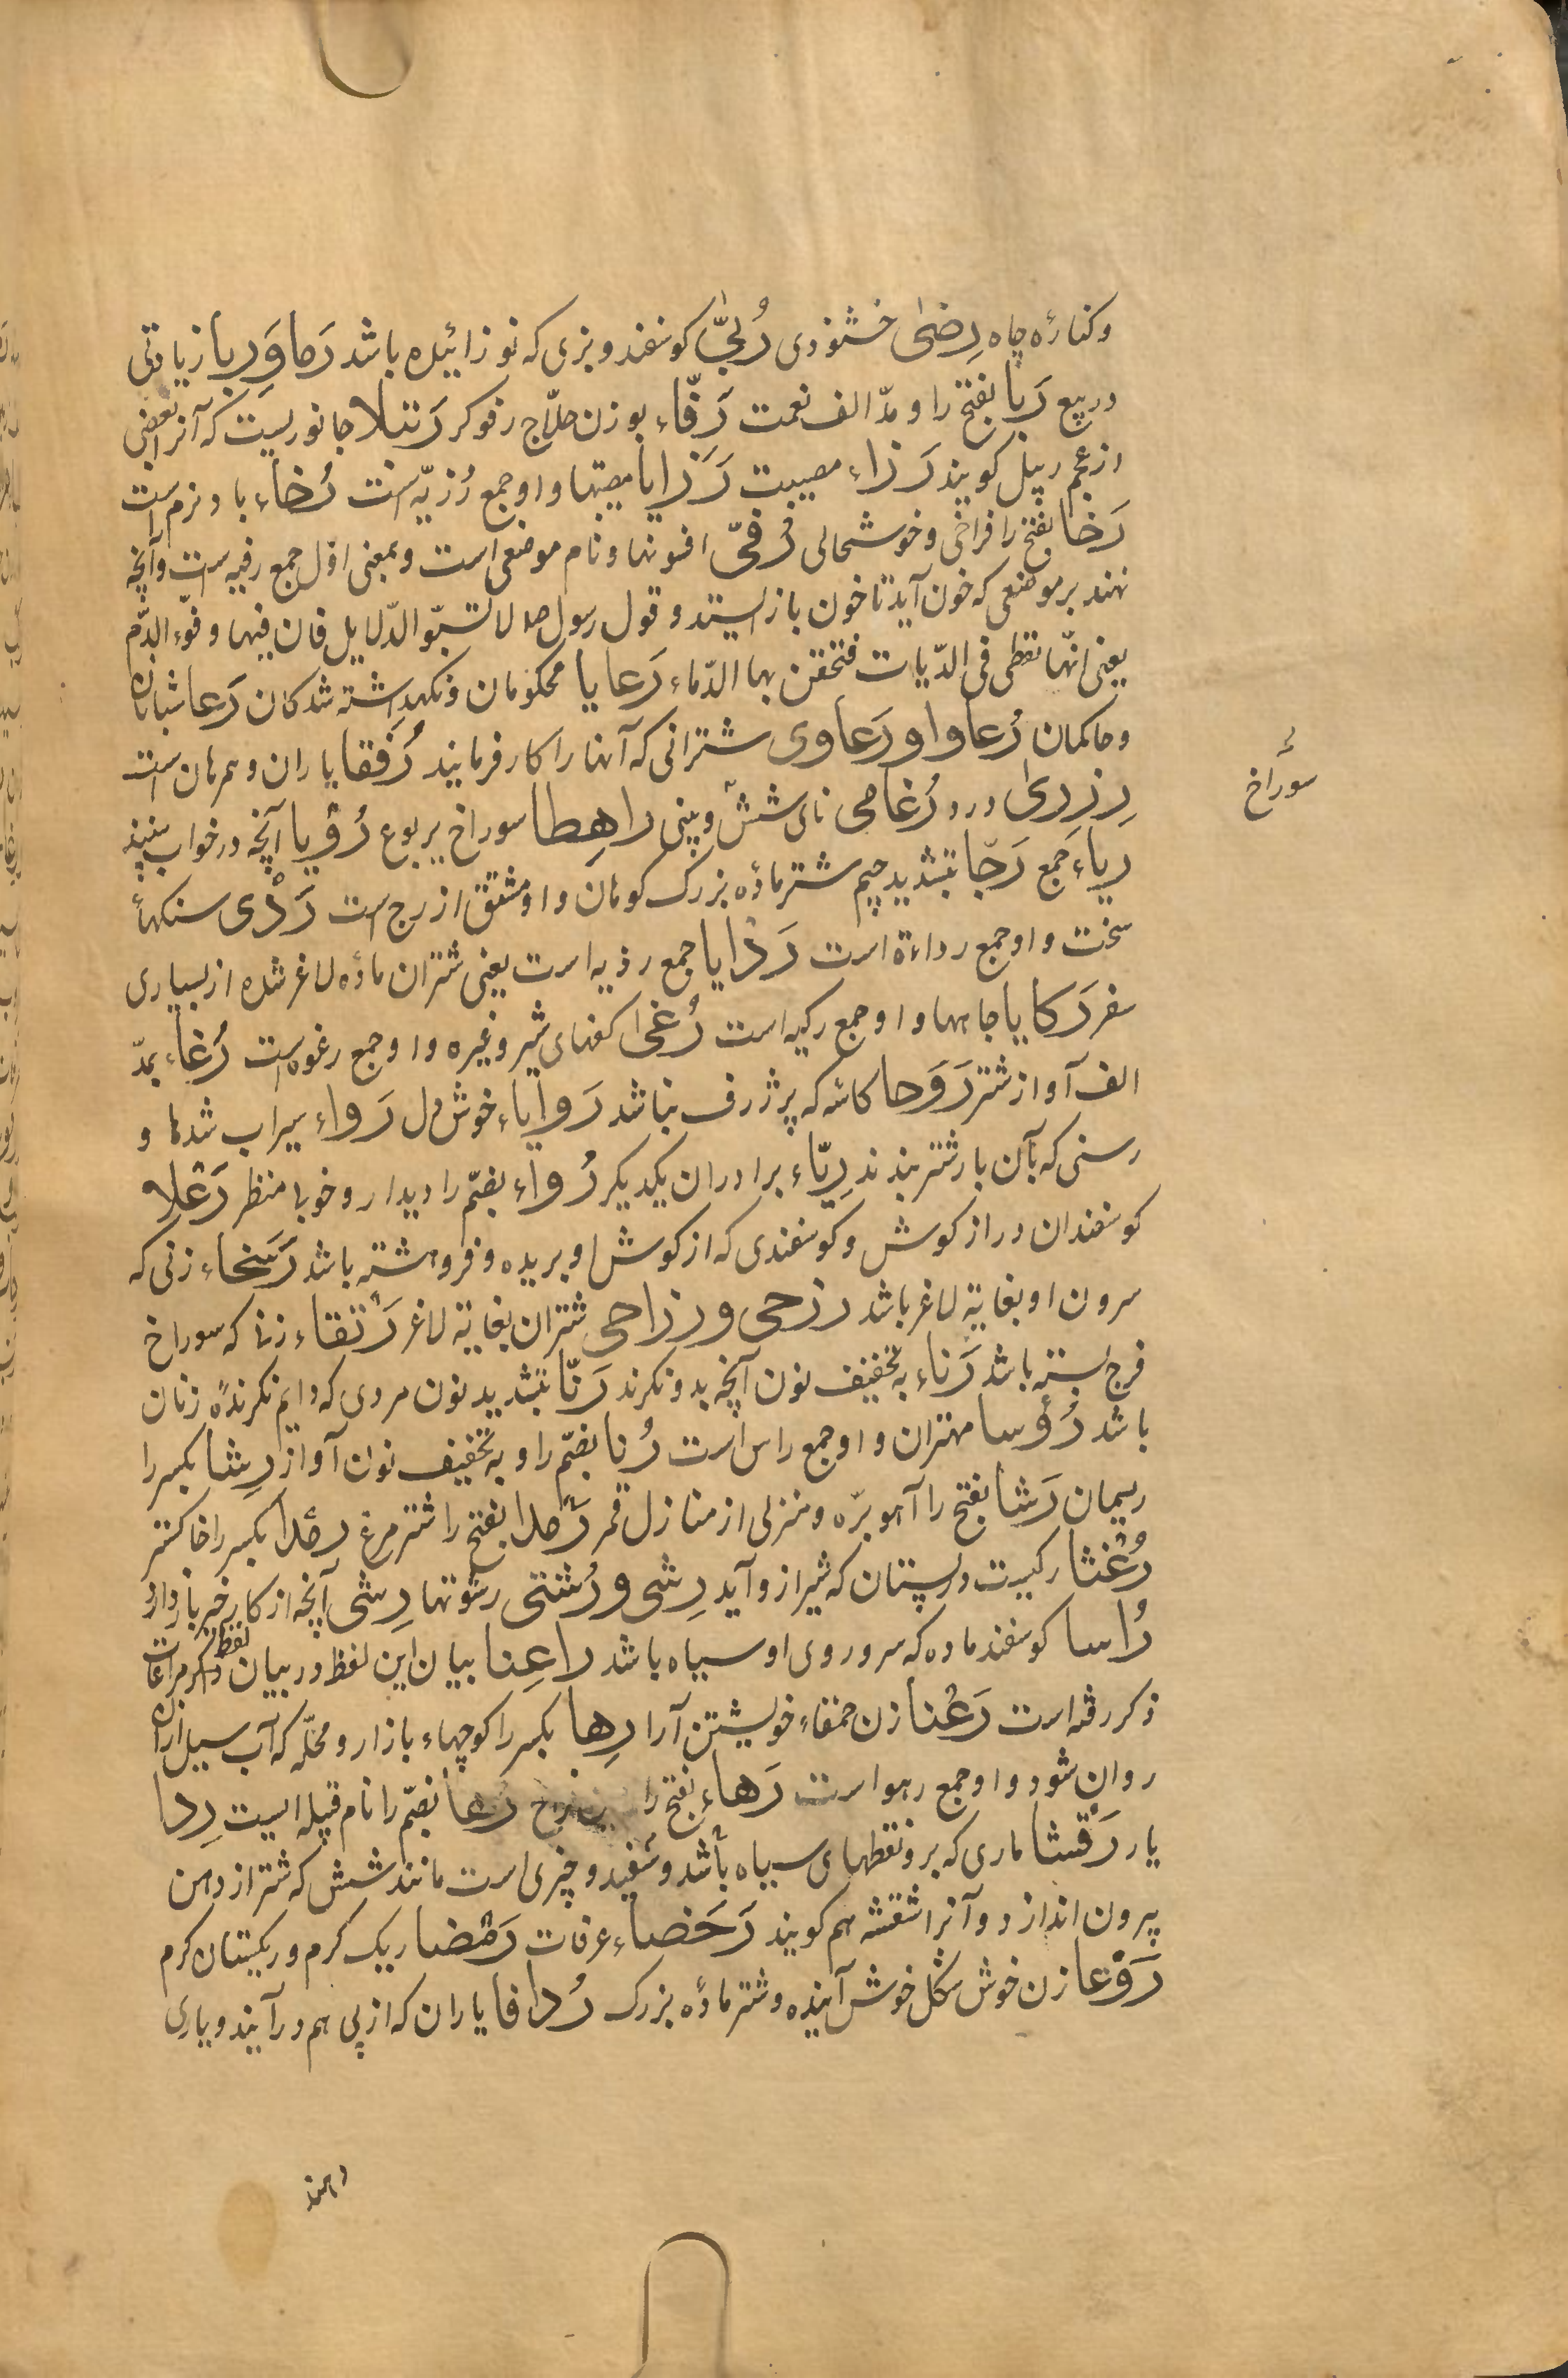 وکنارهٔ چاه رِضیٰ خشنودی رُبّیٰ کوسفند و بزی که نو زائیده باشد رَما وَرِبا زیادتی
در بیع رَبا بفتح را و مدّ الف نعمت رَفّاء بوزن حلّاج رفوکر رَتَیلا جانوریست که آنرا بعضی
از عجم رپیل کویند رَزاء مصیبت رَزایا مصیبتها و او جمع رُزیّه است رُخاء باد نرم است
رَخا بفتح را فراخی و خوشحالی رُقیّ افسونها و نام موضعی است و بمعنی اوّل جمع رقیه است و آنچه
نهند بر موضعی که خون آید تا خون باز ایستد و قول رسول صلا لا تسبّو الدّلایل فان فیها رقوء الدّم
یعنی انّها تعطی فی الدّیات فتحقن بها الدّماء رَعایا محکومان و نکهداشته شدکان رَعا شبانان
و حاکمان رُعاوا و رَعاوی شترانی که آنها را کار فرمایند رُفَقا یاران و همرهان است
رِزِریٰ درد رُغامی نای شش و بینی راهِطا سوراخ یربوع رُؤیا آنچه در خواب بینند
سوراخ
ریاء جمع رَجّا بتشدید جیم شتر مادهٔ بزرک کوهان و او مشتق از رج است رَدْی سنکهاء
سخت و او جمع رداءة است رَذایا جمع رذیه است یعنی شتران مادهٔ لاغر شده از بسیاری
سفر رَکایا چاهها و او جمع رکیه است رُغیٰ کفهای شیر و غیره و او جمع رغوه است رُغاء بمدّ
الف آواز شتر رَوَحا کاسه که پر ژرف نباشد رَوایاء خوش دل رَواء سیراب شدها و
رسنی که بآن بار شتر بندند رِیّاء برادران یکدیکر رُواء بضمّ را دیدار و خوب منظر رَعْلا
کوسفندان دراز کوش و کوسفندی که از کوش او بریده و فروهشته باشد رَسَخاء زنی که
سرون او بغایة لاغر باشد رزحی و رزاحی شتران بغایة لاغر رَتْقاء زنا که سوراخ
فرج بسته باشد رَناء به تخفیف نون آنچه بدو نکرند رَنّا بتشدید نون مردی که دایم نکرندهٔ زنان
باشد رُؤَسا مهتران و او جمع راس است رُنا بضمّ را و به تخفیف نون آواز رِشا بکسر را
ریمان رَشا بفتح را آهو برّه و منزلی از منازل قمر رَمدا بفتح را شتر مرغ رمدا بکسر را خاکستر
رُغْثا رکیست در پستان که شیر ازو آید رِشی و رُشیٰ رشوتها رِشی آنچه از کار خیر باز دارد
رُاسا کوسفند ماده که سر و روی او سیاه باشد راعِنا بیان این لفظ در بیان لفظ مراعات
ذکر رفته است رَعْنا زن حمقاء خویشتن آرا رِها بکسر را کوچهاء بازار و محلّه که آب سیل از آن
روان شود و او جمع رهوا است رَهاء بفتح را زمین فراخ رُها بضمّ را نام قبیله ایست رِدا
یار رَقْشا ماری که برو نقطهای سیاه باشد و سفید و چیزی است مانند شش که شتر از دهن
بیرون اندازد و آنرا شقشقه هم کویند رَحَضاء عرقات رَمْضا ریک کرم و ریکستان کرم
رَوْعا زن خوش شکل خوش آینده و شتر مادهٔ بزرک رُدافا یاران که از پی هم درآیند و یاری
دهند